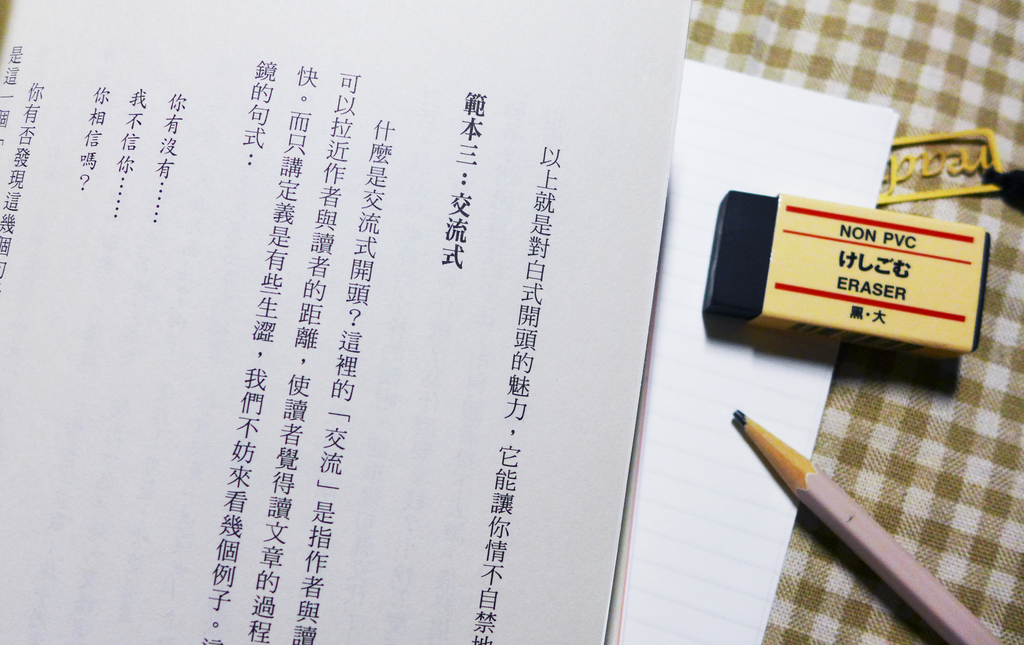 以上就是對白式開頭的魅力，它能讓你情不自禁地
範本三：交流式
什麼是交流式開頭？這裡的「交流」是指作者與讀
可以拉近作者與讀者的距離，使讀者覺得讀文章的過程
快。而只講定義是有些生澀，我們不妨來看幾個例子。這
鏡的句式：
你有沒有……
我不信你……
你相信嗎？
你有否發現這幾個句
是這一個「
read
NON PVC
けしごむ
ERASER
黒・大